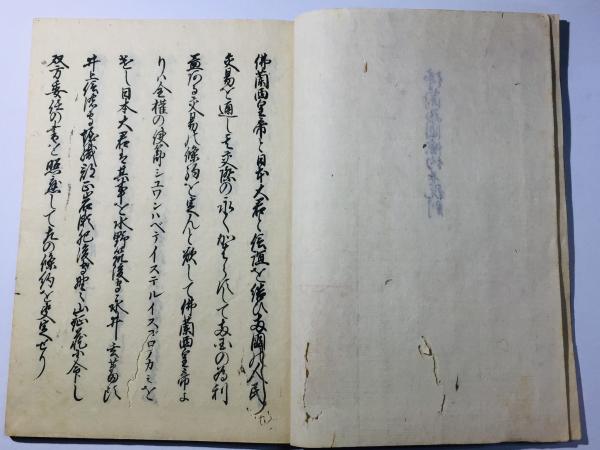 佛蘭西皇帝と日本大君と信誼を結ひ両國の人民
交易を通し其交際の永くかはら して両国の為利
益ある交易の條約を定んと欲して佛蘭西皇帝よ
りハ全権の使節シユワンハペテイステルイス ロノカミを
し日本大君は其事を水野筑後守永井玄蕃頭
井上信濃守堀織部正岩瀬肥後守野々山鉦蔵に命し
双方委任の書を照應して左の條約を定せり
佛蘭西國條約并税則